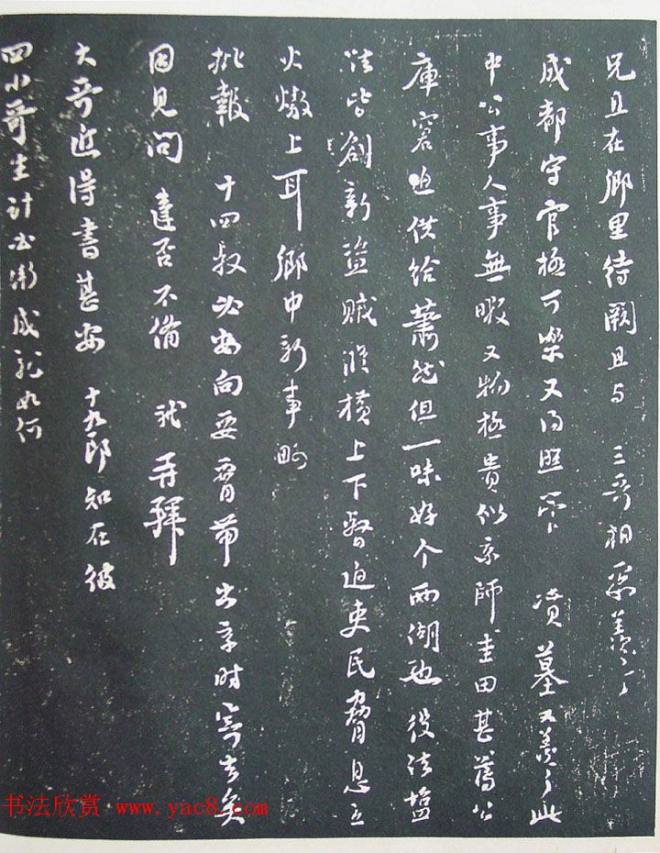 兄且在乡里待阙且与　三哥相聚羡羡
成都守官极可乐又得照管　坟墓又羡羡此
中公事人事無暇又物极貴似京師圭田甚薄公
庫窘迫供给蕭然但一味好个西湖也役法塩
法皆創新盗贼縱横上下督迫吏民脅息立
火燉上耳鄉中新事略
批報　十四叔必安向要膂带出京時寄去矣
因見問達否不備　軾再拜
大哥近得書甚安　十九郎知在彼
四小哥生计必漸成就如何
书法欣赏 www.yac8.com